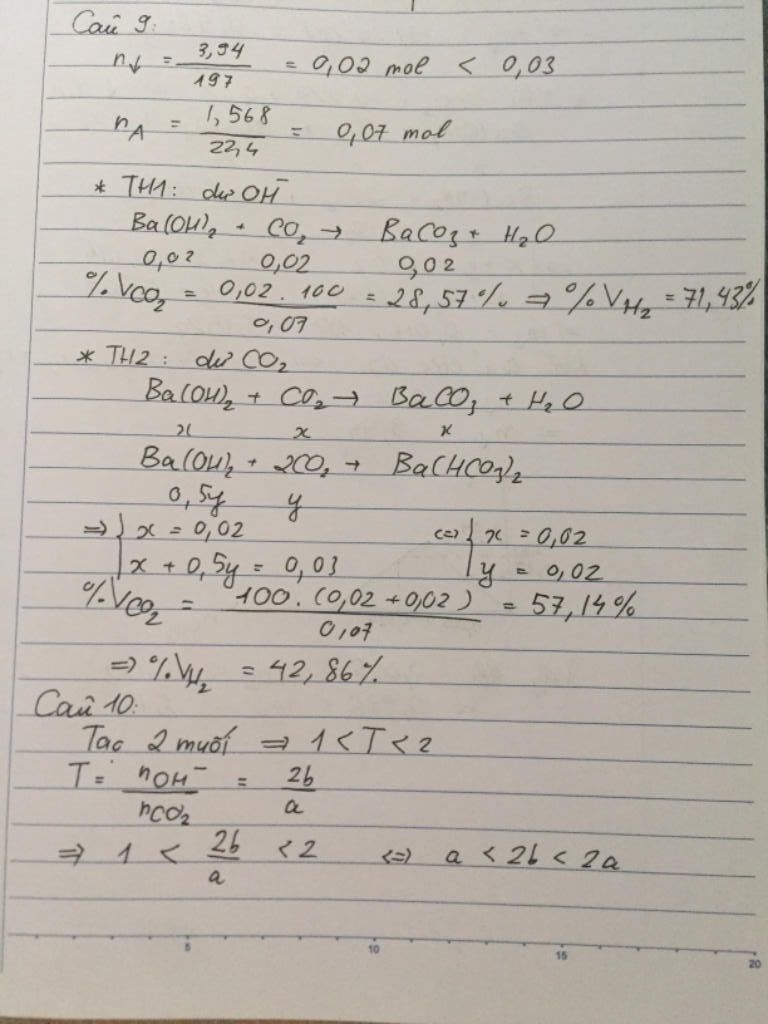 Câu 9:
n↓ = 3,94 / 197 = 0,02 mol < 0,03
nA = 1,568 / 22,4 = 0,07 mol
* TH1: dư OH⁻
Ba(OH)₂ + CO₂ → BaCO₃ + H₂O
0,02 0,02 0,02
%VCO₂ = 0,02 . 100 / 0,07 = 28,57% ⇒ %VH₂ = 71,43%
* TH2: dư CO₂
Ba(OH)₂ + CO₂ → BaCO₃ + H₂O
x x x
Ba(OH)₂ + 2CO₂ → Ba(HCO₃)₂
0,5y y
⇒ { x = 0,02 ⇔ { x = 0,02
x + 0,5y = 0,03 y = 0,02
%VCO₂ = 100 . (0,02 + 0,02) / 0,07 = 57,14%
⇒ %VH₂ = 42,86%
Câu 10:
Tạo 2 muối ⇒ 1 < T < 2
T = nOH⁻ / nCO₂ = 2b / a
⇒ 1 < 2b / a < 2 ⇔ a < 2b < 2a
5 10 15 20